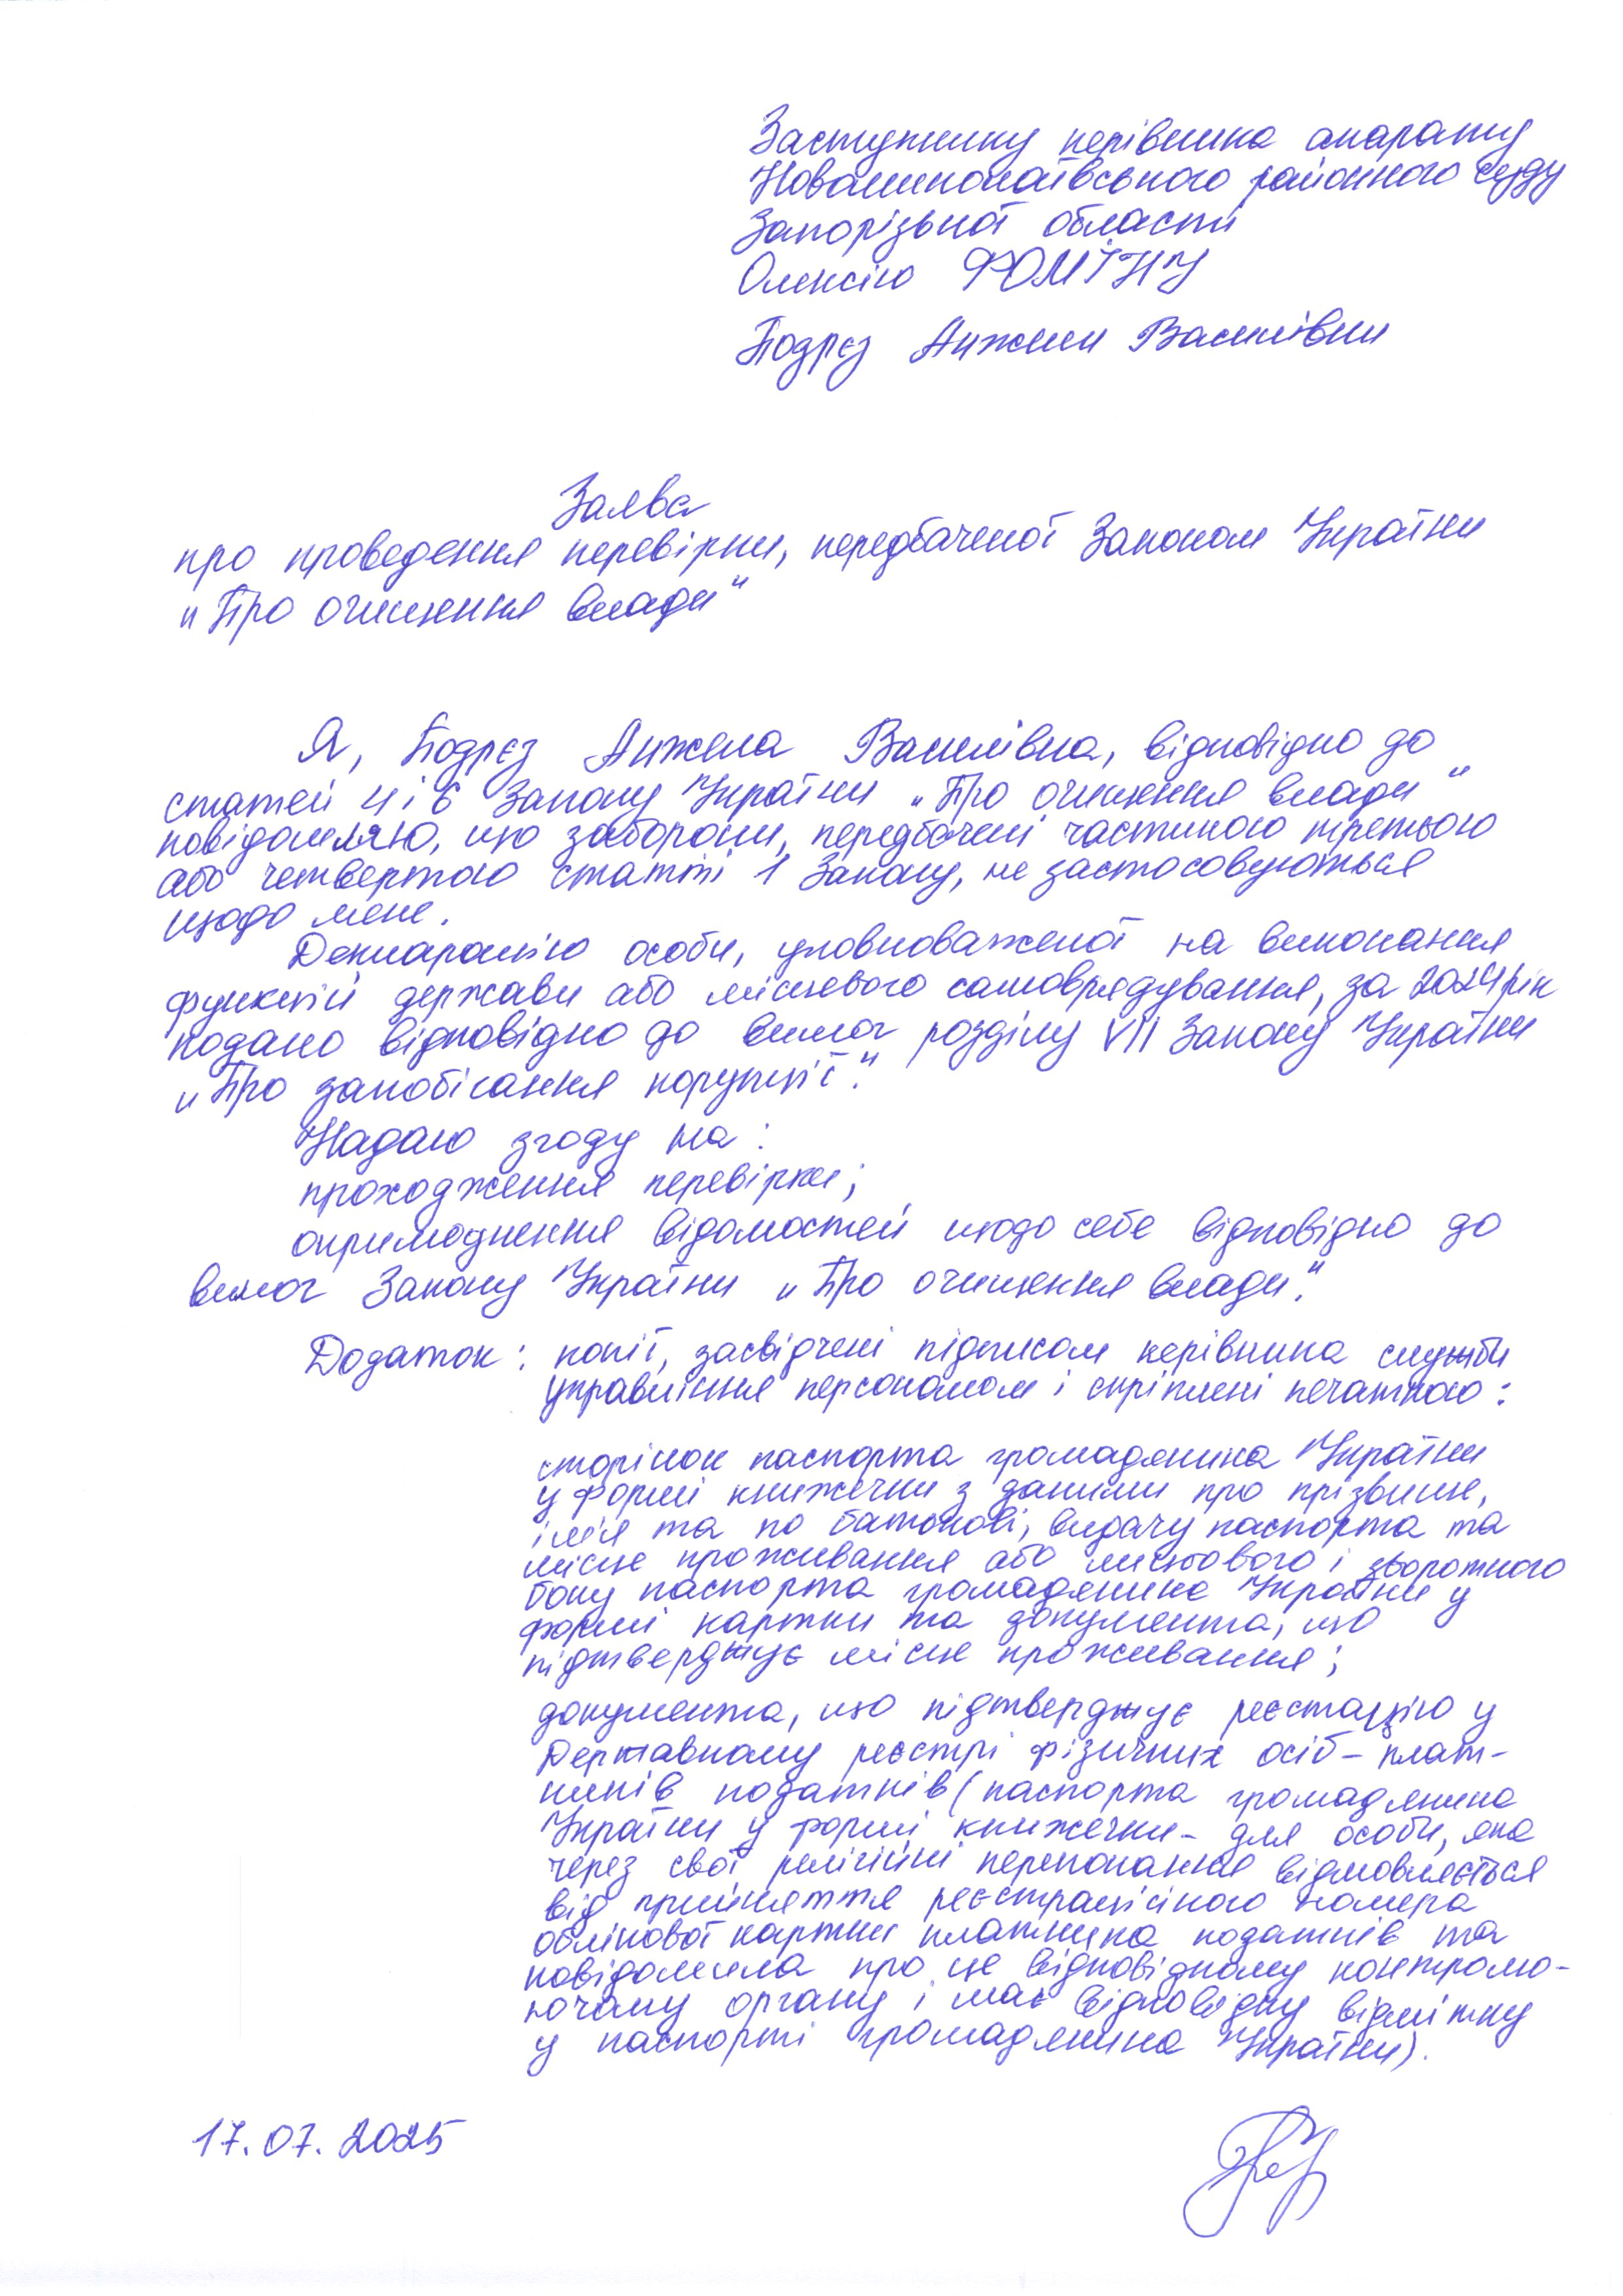 Заступнику керівника апарату
Новомиколаївського районного суду
Запорізької області
Олексію ФОМІНУ
Подрєз Анжели Василівни
Заява
про проведення перевірки, передбаченої Законом України
"Про очищення влади"
Я, Подрєз Анжела Василівна, відповідно до
статей 4 і 6 Закону України "Про очищення влади"
повідомляю, що заборони, передбачені частиною третьою
або четвертою статті 1 Закону, не застосовуються
щодо мене.
Декларацію особи, уповноваженої на виконання
функцій держави або місцевого самоврядування, за 2024 рік
подано відповідно до вимог розділу VII Закону України
"Про запобігання корупції".
Надаю згоду на:
проходження перевірки;
оприлюднення відомостей щодо себе відповідно до
вимог Закону України "Про очищення влади".
Додаток: копії, засвідчені підписом керівника служби
управління персоналом і скріплені печаткою:
сторінок паспорта громадянина України
у формі книжечки з даними про прізвище,
ім'я та по батькові, видачу паспорта та
місце проживання або лицьового і зворотного
боку паспорта громадянина України у
формі картки та документа, що
підтверджує місце проживання;
документа, що підтверджує реєстрацію у
Державному реєстрі фізичних осіб - плат-
ників податків (паспорта громадянина
України у формі книжечки - для особи, яка
через свої релігійні переконання відмовляється
від прийняття реєстраційного номера
облікової картки платника податків та
повідомила про це відповідному контролю-
ючому органу і має відповідну відмітку
у паспорті громадянина України).
17.07.2025